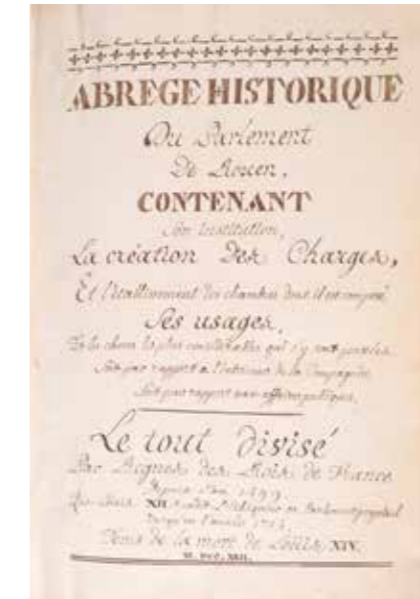 ABREGE HISTORIQUE
Du Parlement
De Rouen,
CONTENANT
Son Institution,
La création Des Charges,
Et l'établissement des chambres dont il est composé
Ses usages,
Et les choses les plus considerables qui s'y sont passées
Soit par rapport a l'interieur de la Compagnie
Soit par rapport aux affaires publiques.
Le tout divisé
Par Regnes des Rois de France
Depuis l'an 1499
Que Louis XII rendit l'Echiquier en Parlement perpetuel
Jusqu'en l'année 1715.
Tems de la mort de Louis XIV.